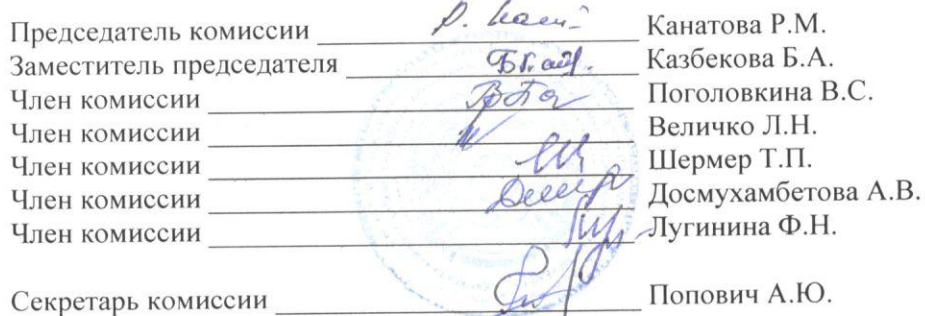 Председатель комиссии Канатова Р.М.
Заместитель председателя Казбекова Б.А.
Член комиссии Поголовкина В.С.
Член комиссии Величко Л.Н.
Член комиссии Шермер Т.П.
Член комиссии Досмухамбетова А.В.
Член комиссии Лугинина Ф.Н.
Секретарь комиссии Попович А.Ю.